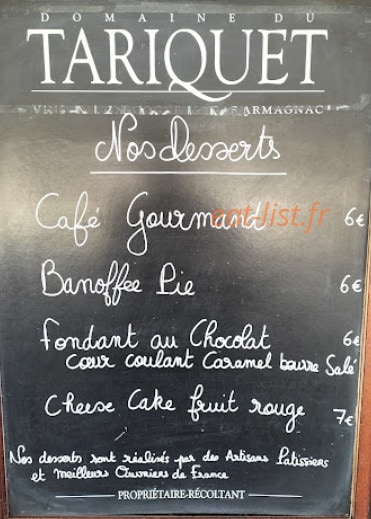 DOMAINE DU
TARIQUET
ARMAGNAC
Nos desserts
Café Gourmand 6€
eat-list.fr
Banoffee Pie 6€
Fondant au Chocolat 6€
Cœur coulant Caramel beurre Salé
Cheese Cake fruit rouge 7€
Nos desserts sont réalisés par des Artisans Patissiers
et meilleurs Ouvriers de France
PROPRIÉTAIRE-RÉCOLTANT